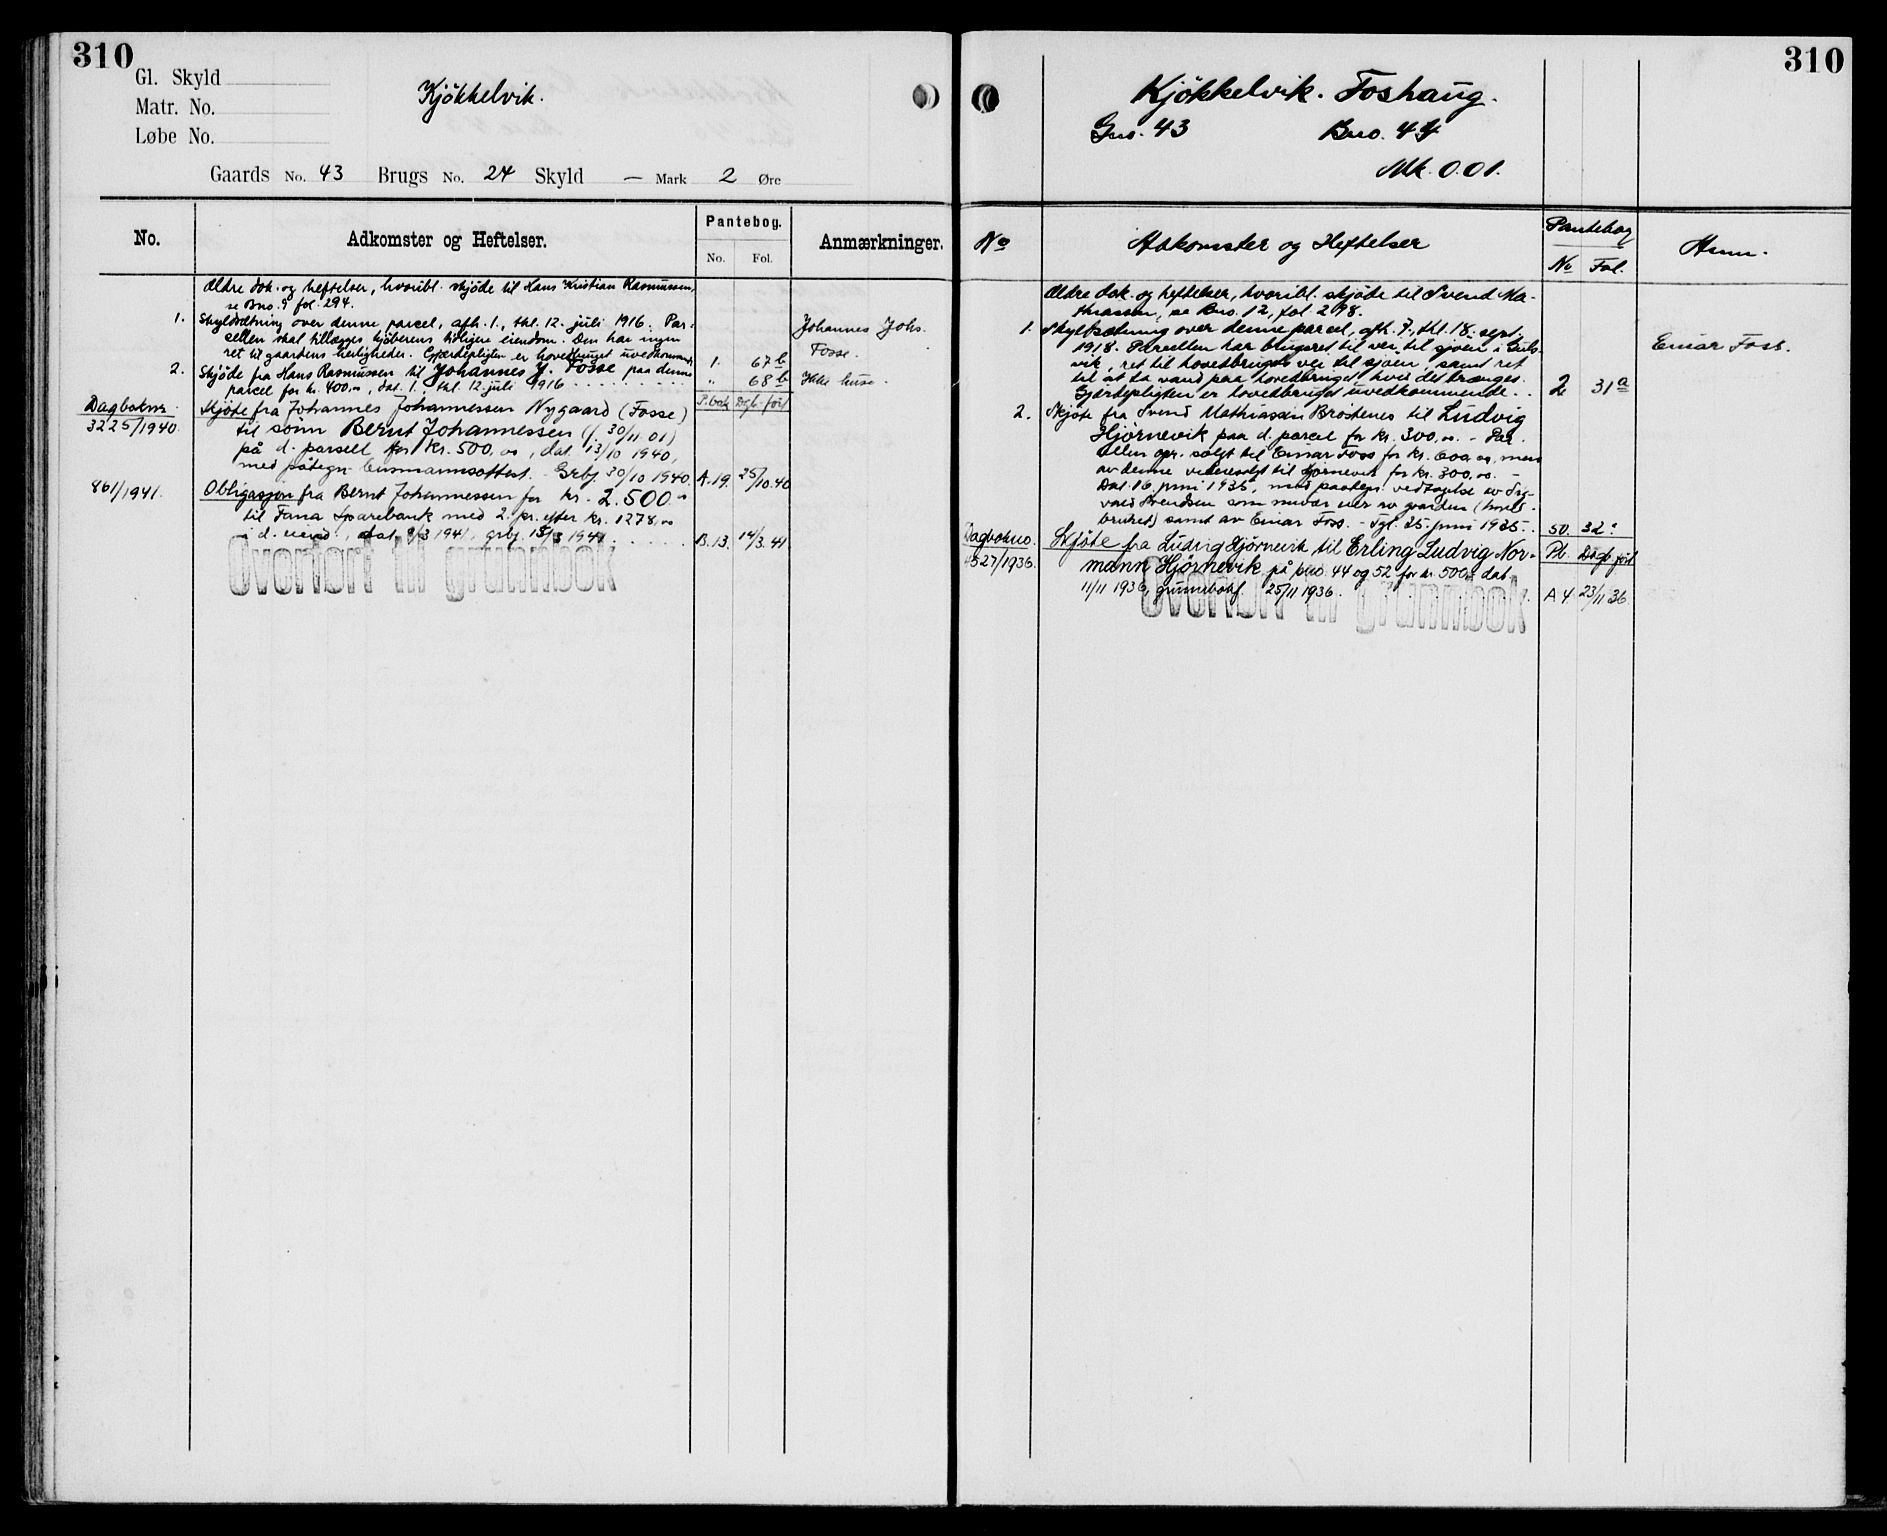 310
Gl. Skyld
Matr. No.
Løbe No.
Kjökkelvik.
Gaards No. 43 Brugs No. 24 Skyld — Mark 2 Øre
No.
Adkomster og Heftelser.
Pantebog.
No. Fol.
Anmærkninger.
Ældre dok. og heftelser, hvoribl. skjöde til Hans Kristian Rasmussen,
se Bno. 9 fol. 294.
1. Skyldsætning over denne parcel, afh. 1., thl. 12. juli 1916. Par-
cellen skal tillægges kjöberens tidligere eiendom. Den har ingen
ret til gaardens herligheder. Gjærdepligten er hovedbruget uvedkommende. 1. 67 b
Johannes Johs.
Fosse.
2. Skjöde fra Hans Rasmussen til Johannes J. Fosse paa denne
parcel for kr. 400,00, dat. 1., thl. 12. juli 1916 . . . . . . . . . " 68 b
Ikke huse.
P.bok Dagb. ført
Dagboknr.
3225/1940.
Skjöte fra Johannes Johannessen Nygaard (Fosse)
til sönn Bernt Johannessen (f. 30/11 01)
på d. parsell for kr. 500,00, dat. 13/10 1940,
med påtegn. Grbf. 30/10 1940. A.19. 25/10.40
861/1941.
Obligasjon fra Bernt Johannessen for kr. 2.500.00
til Fana Sparebank med 2. pr. efter kr. 1278,00
i d. eiend., dat. 8/3 1941, grbf. 15/3 1941 . . . . . . B.13. 14/3.41
Overført til grunnbok
310
Kjökkelvik. Foshaug.
Gno. 43 Bno. 44
Mk. 0.01.
No
Adkomster og Heftelser
Pantebog
No Fol.
Anm.
Ældre dok. og heftelser, hvoribl. skjöde til Svend Ma-
thiassen, se Bno. 12, fol. 298.
1. Skyldsætning over denne parcel, afh. 7., thl. 18. sept.
1918. Parcellen har bruget til vei til sjöen i
vik, ret til hovedbrugets vei til sjöen, samt ret
til at ta vand paa hovedbruget, hvis det trænges.
Gjærdepligten er hovedbruget uvedkommende. . 2 31 a
Einar Foss.
2. Skjöte fra Svend Mathiassen Brostenes til Ludvig
Hjörnevik paa d. parcel for kr. 300,00. - Par-
cellen opr. solgt til Einar Foss for kr. 600,00, men
av denne videresolgt til Hjörnevik for kr. 300,00. -
Dat. 16. juni 1935, med paategn. vedtagelse av Sig-
vald Svendsen som nuvær. eier av gaarden (hoved-
bruket) samt av Einar Foss. - Tgl. 25. juni 1935 -. 50. 32 a
Dagbokno.
4527/1936.
Skjöte fra Ludvig Hjörnevik til Erling Ludvig Nor-
mann Hjörnevik på bno 44 og 52 for kr. 500,- dat.
11/11 1936, grunnbokf. 25/11 1936.
Pb. Dagb. ført
A 4 23/11 36
Overført til grunnbok